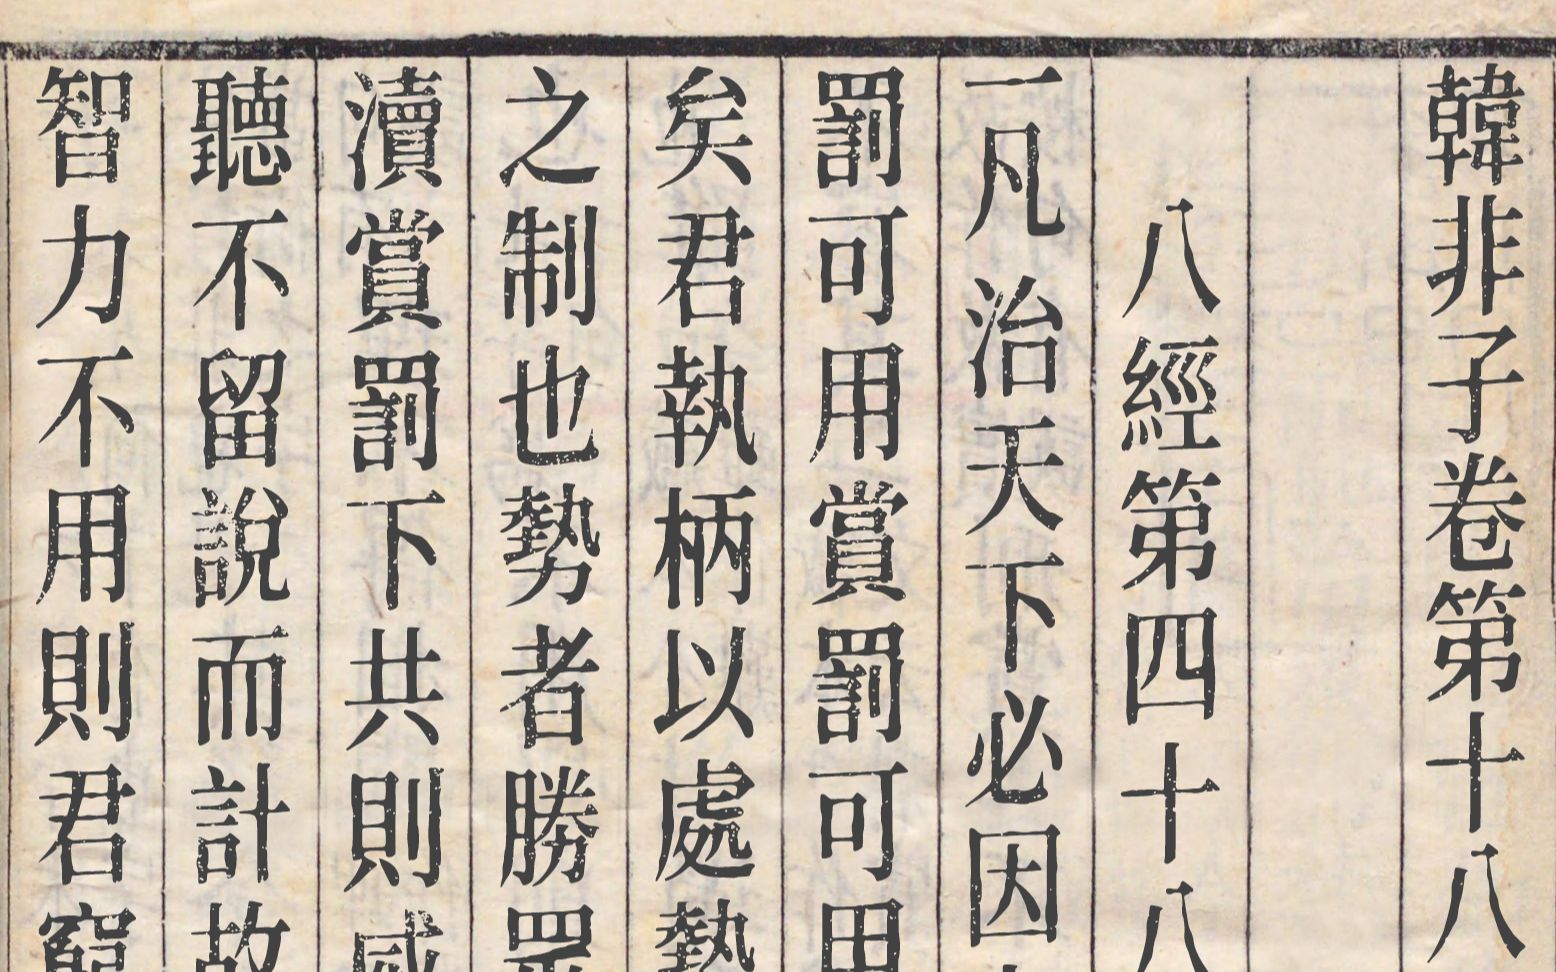 韓非子卷第十八
八經第四十八
一凡治天下必因
罰可用賞罰可用
矣君執柄以處勢
之制也勢者勝眾
瀆賞罰下共則威
聽不留說而計故
智力不用則君窮